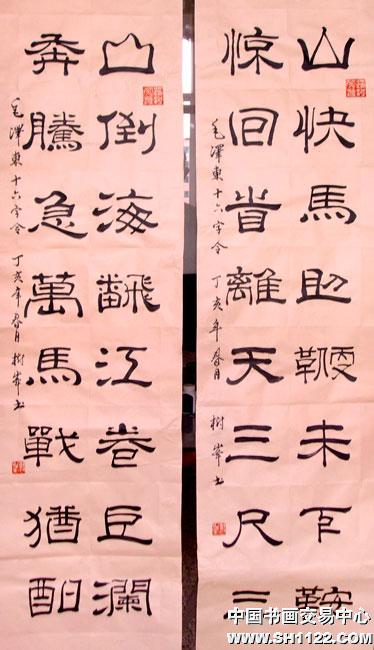 山快馬加鞭未下鞍
惊回首離天三尺三
毛澤東十六字令 丁亥年春月 樹峯书
山倒海飜江卷巨瀾
奔騰急萬馬戰猶酣
毛澤東十六字令 丁亥年春月 樹峯书
中国书画交易中心
www.SH1122.com